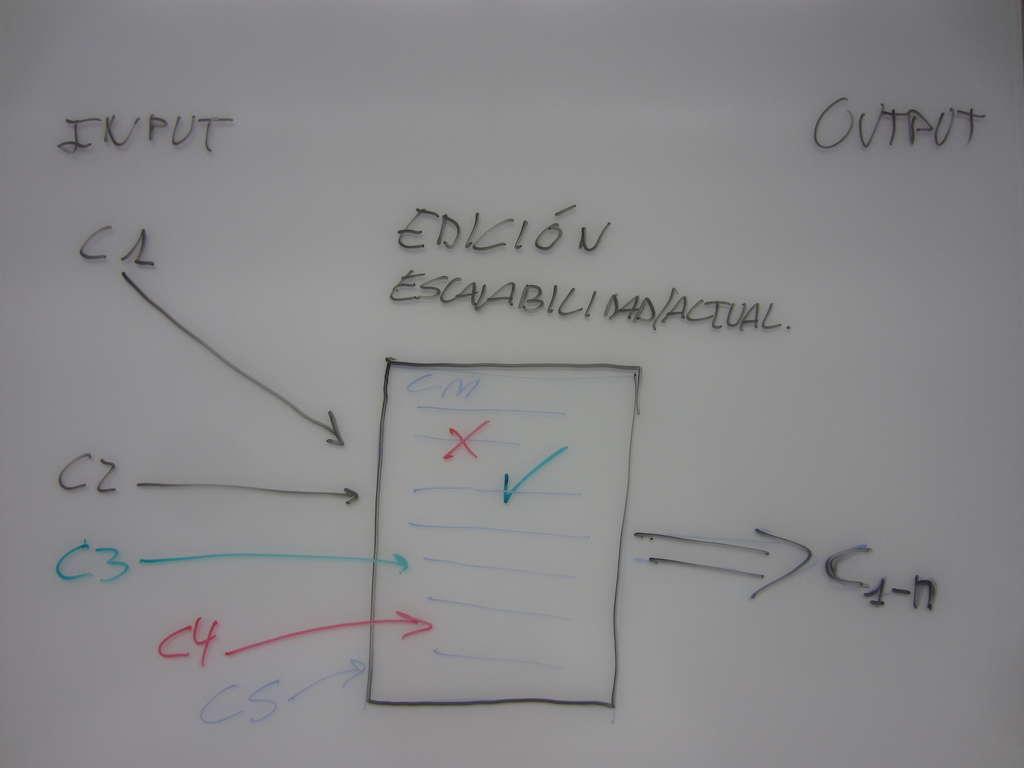 INPUT
OUTPUT
C1
EDICIÓN
ESCALABILIDAD/ACTUAL.
CM
C2
C3
C1-n
C4
C5